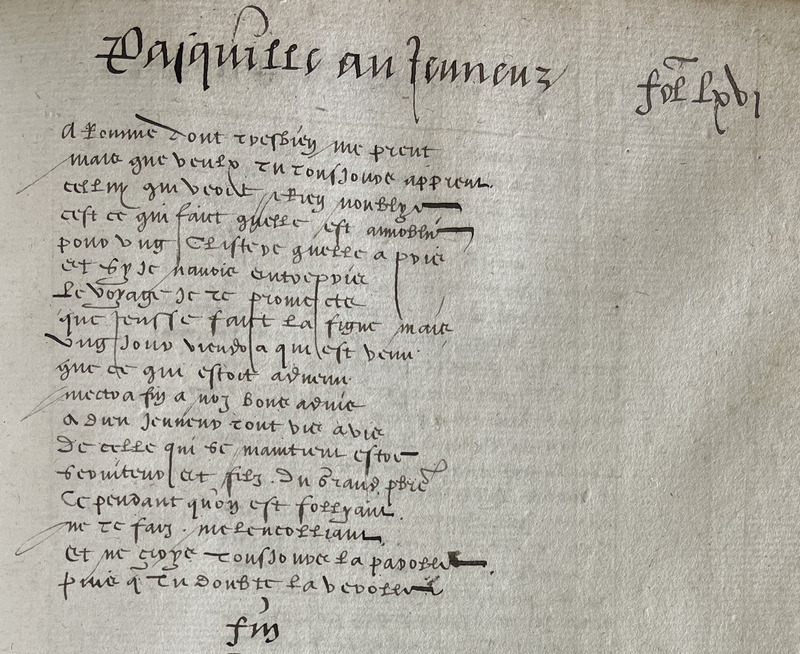 Pasquille au Jenneuz
fol lxvi
A Romme dont tresbien me prent
mais que veulx tu tousjours apprent
celluy qui veoit Rien noublye
cest ce qui faict quelle est annoblie
pour ung Clistere quelle a pris
et sy Je navois entrepris
Le voyage Je te promectz
que Jeusse faict la figue mais
ung Jour viendra qui est venu
que ce qui estoit advenu
mectra fin a noz bons advis
adieu Jenneur tout vis a vis
De celle qui se maintient estre
serviteur et filz du grand pbre
Ce pendant quon est follyant
ne te faiz melencolliant
et ne croye tousjours la parolle
puis q tu doubte la verolle
fin